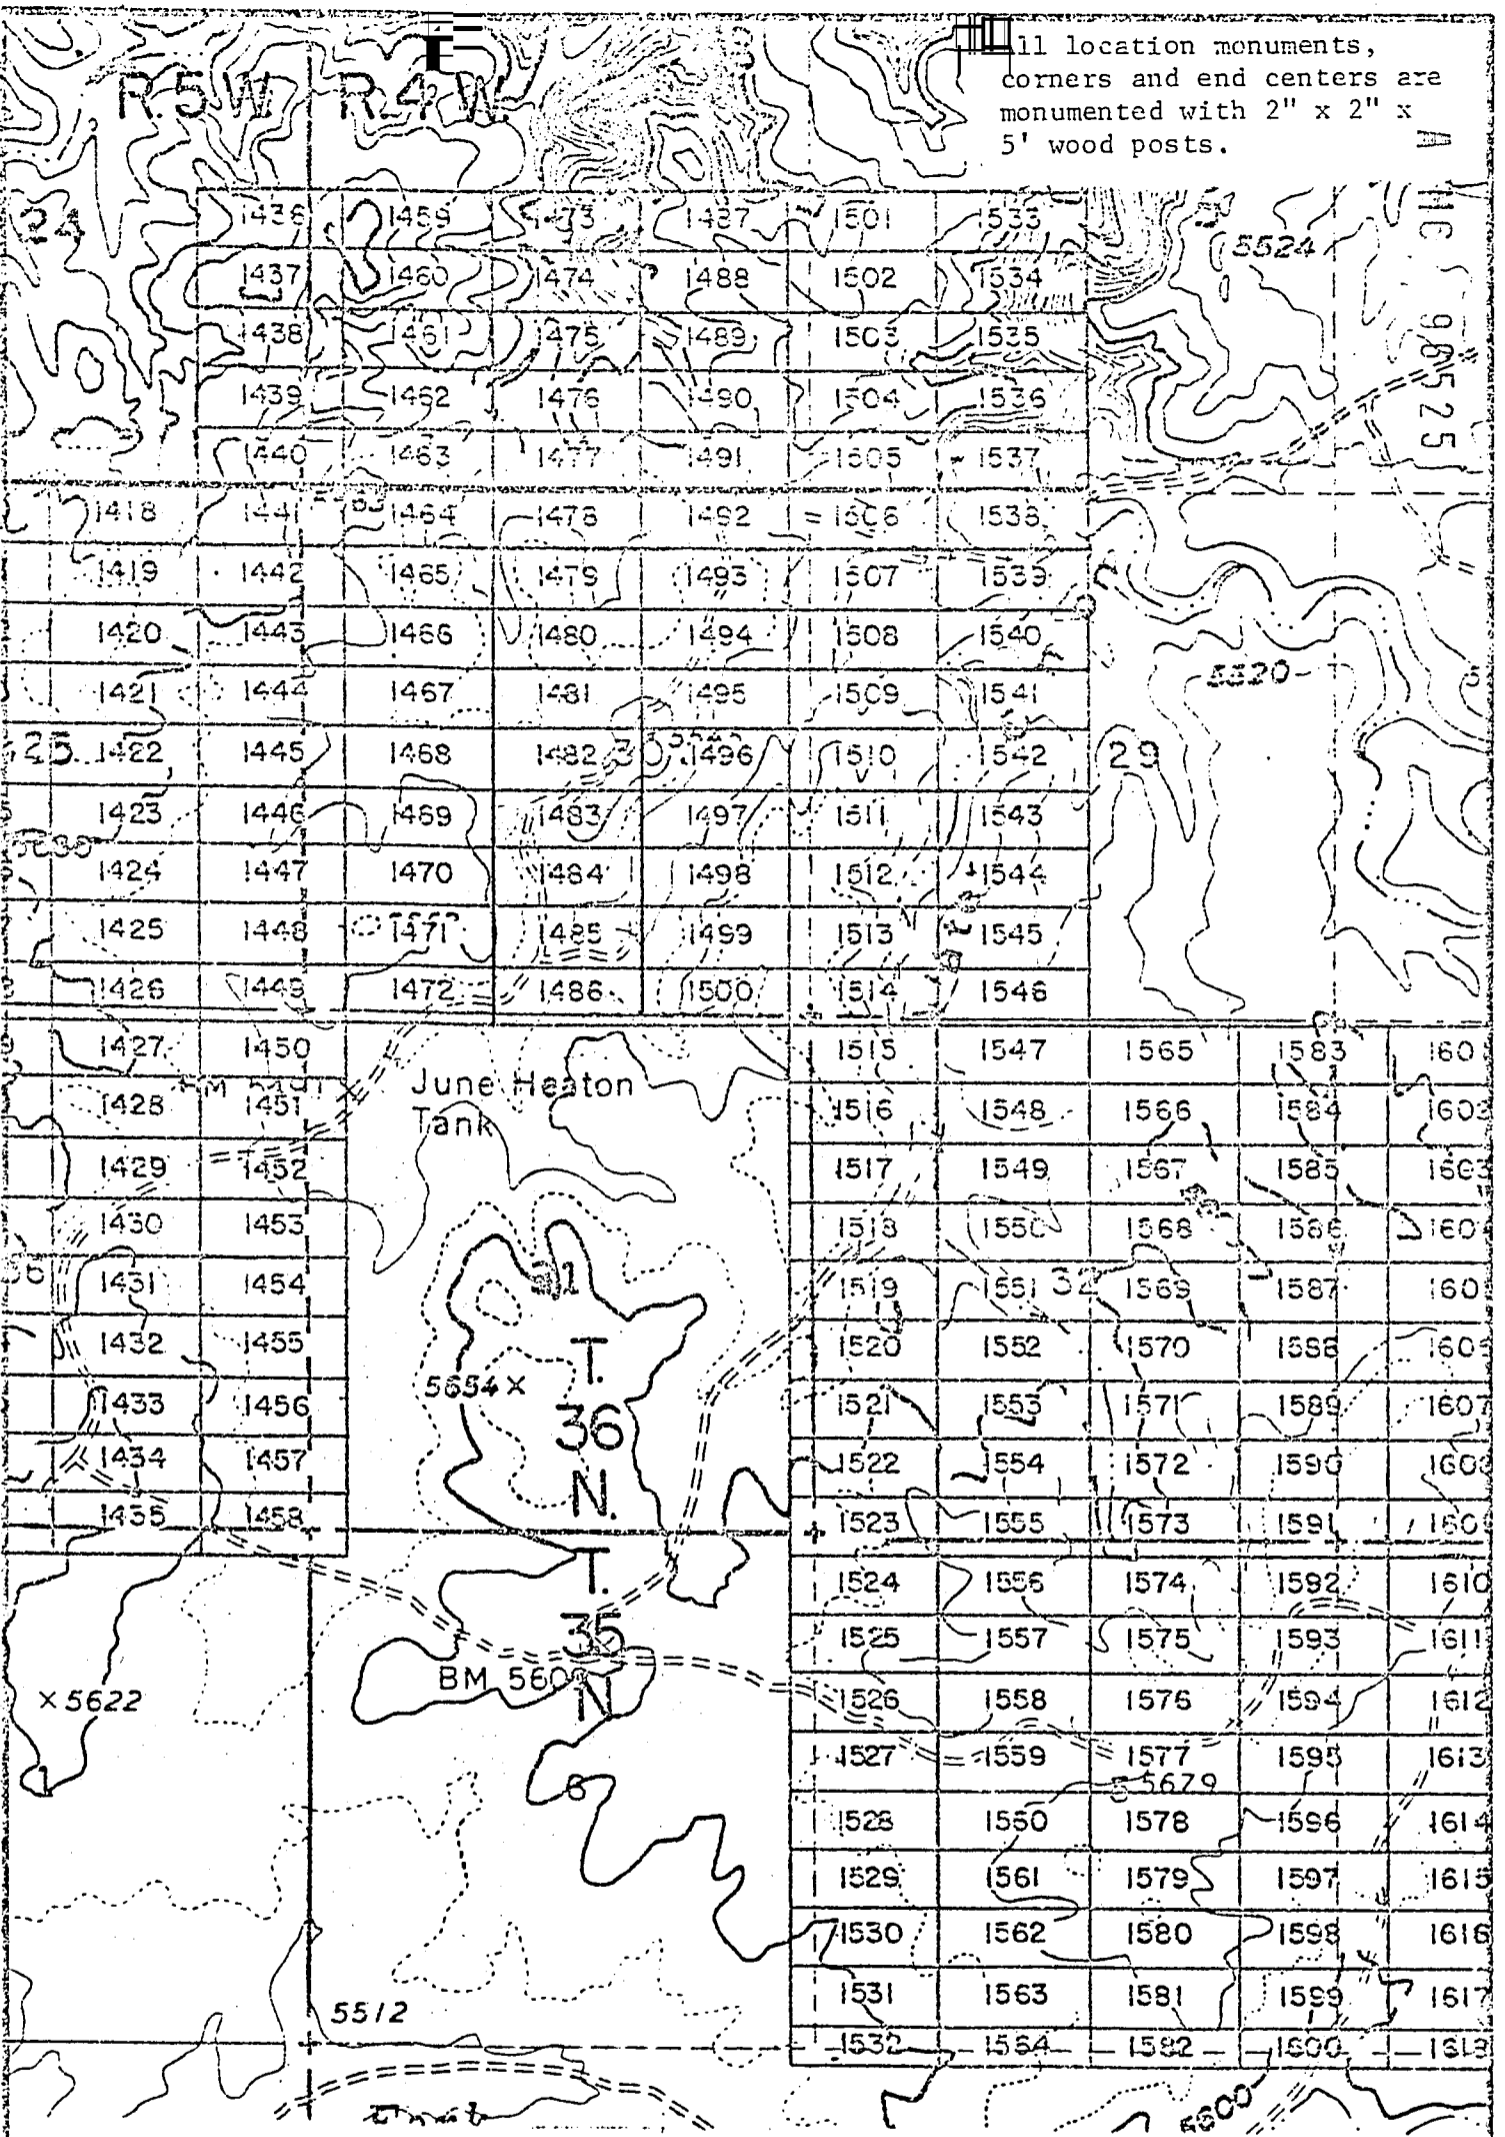 All location monuments,
corners and end centers are
monumented with 2" x 2" x
5' wood posts.
R.5W R.4W.
24 1436 1459 1473 1487 1501 1533
5524
1437 1460 1474 1488 1502 1534
1438 1461 1475 1489 1503 1535
1439 1462 1476 1490 1504 1536
1440 1463 1477 1491 1505 1537
1418 1441 1464 1478 1492 1506 1538
1419 1442 1465 1479 1493 1507 1539
1420 1443 1466 1480 1494 1508 1540
5520
1421 1444 1467 1481 1495 1509 1541
25 1422 1445 1468 1482 30 1496 1510 1542 29
1423 1446 1469 1483 1497 1511 1543
1424 1447 1470 1484 1498 1512 1544
1425 1448 1471 1485 1499 1513 1545
1426 1449 1472 1486 1500 1514 1546
1427 1450 1515 1547 1565 1583 160
June Heaton
Tank
1428 1451 1516 1548 1566 1584 1602
1429 1452 1517 1549 1567 1585 1603
1430 1453 1518 1550 1568 1586 160
1431 1454 31 1519 1551 32 1569 1587 160
1432 1455 1520 1552 1570 1588 1606
T.
36
N.
5654
1433 1456 1521 1553 1571 1589 1607
1434 1457 1522 1554 1572 1590 1608
1435 1458 1523 1555 1573 1591 160
T.
35
N
1524 1556 1574 1592 1610
1525 1557 1575 1593 1611
BM
×5622
1526 1558 1576 1594 1612
1527 1559 1577 1595 1613
1 6 5 5679
1528 1560 1578 1596 1614
1529 1561 1579 1597 1615
1530 1562 1580 1598 1616
1531 1563 1581 1599 1617
5512
1532 1564 1582 1600 1618
5600
A MC
96525